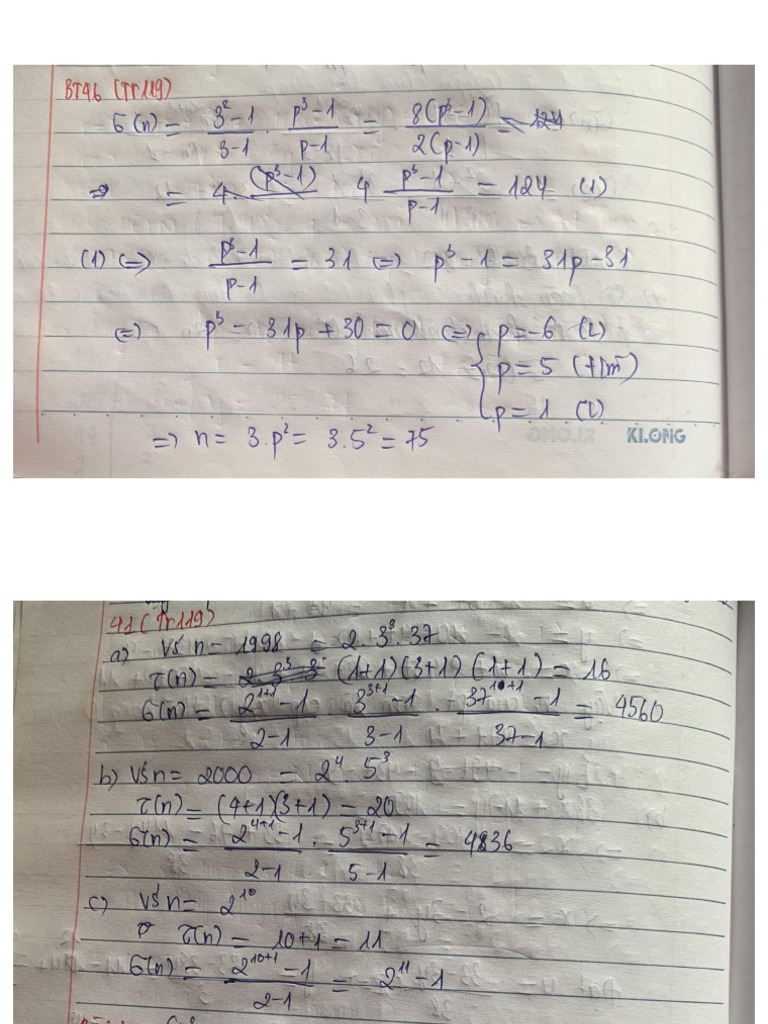 BT46 (Tr119)
σ(n) = (3²-1)/(3-1) · (p³-1)/(p-1) = 8(p³-1)/2(p-1) =
⇒ = 4 (p³-1)/(p-1) = 124 (1)
(1) ⇔ (p³-1)/(p-1) = 31 ⇔ p³-1 = 31p-31
⇔ p³ - 31p + 30 = 0 ⇔ p = -6 (L)
p = 5 (t/m)
p = 1 (L)
⇒ n = 3.p² = 3.5² = 75
KLONG
41 (Tr119)
a) Với n = 1998 = 2.3³.37
τ(n) = (1+1)(3+1)(1+1) = 16
σ(n) = (2¹⁺¹-1)/(2-1) · (3³⁺¹-1)/(3-1) · (37¹⁺¹-1)/(37-1) = 4560
b) Với n = 2000 = 2⁴ 5³
τ(n) = (4+1)(3+1) = 20
σ(n) = (2⁴⁺¹-1)/(2-1) · (5³⁺¹-1)/(5-1) = 4836
c) Với n = 2¹⁰
τ(n) = 10+1 = 11
σ(n) = (2¹⁰⁺¹-1)/(2-1) = 2¹¹-1